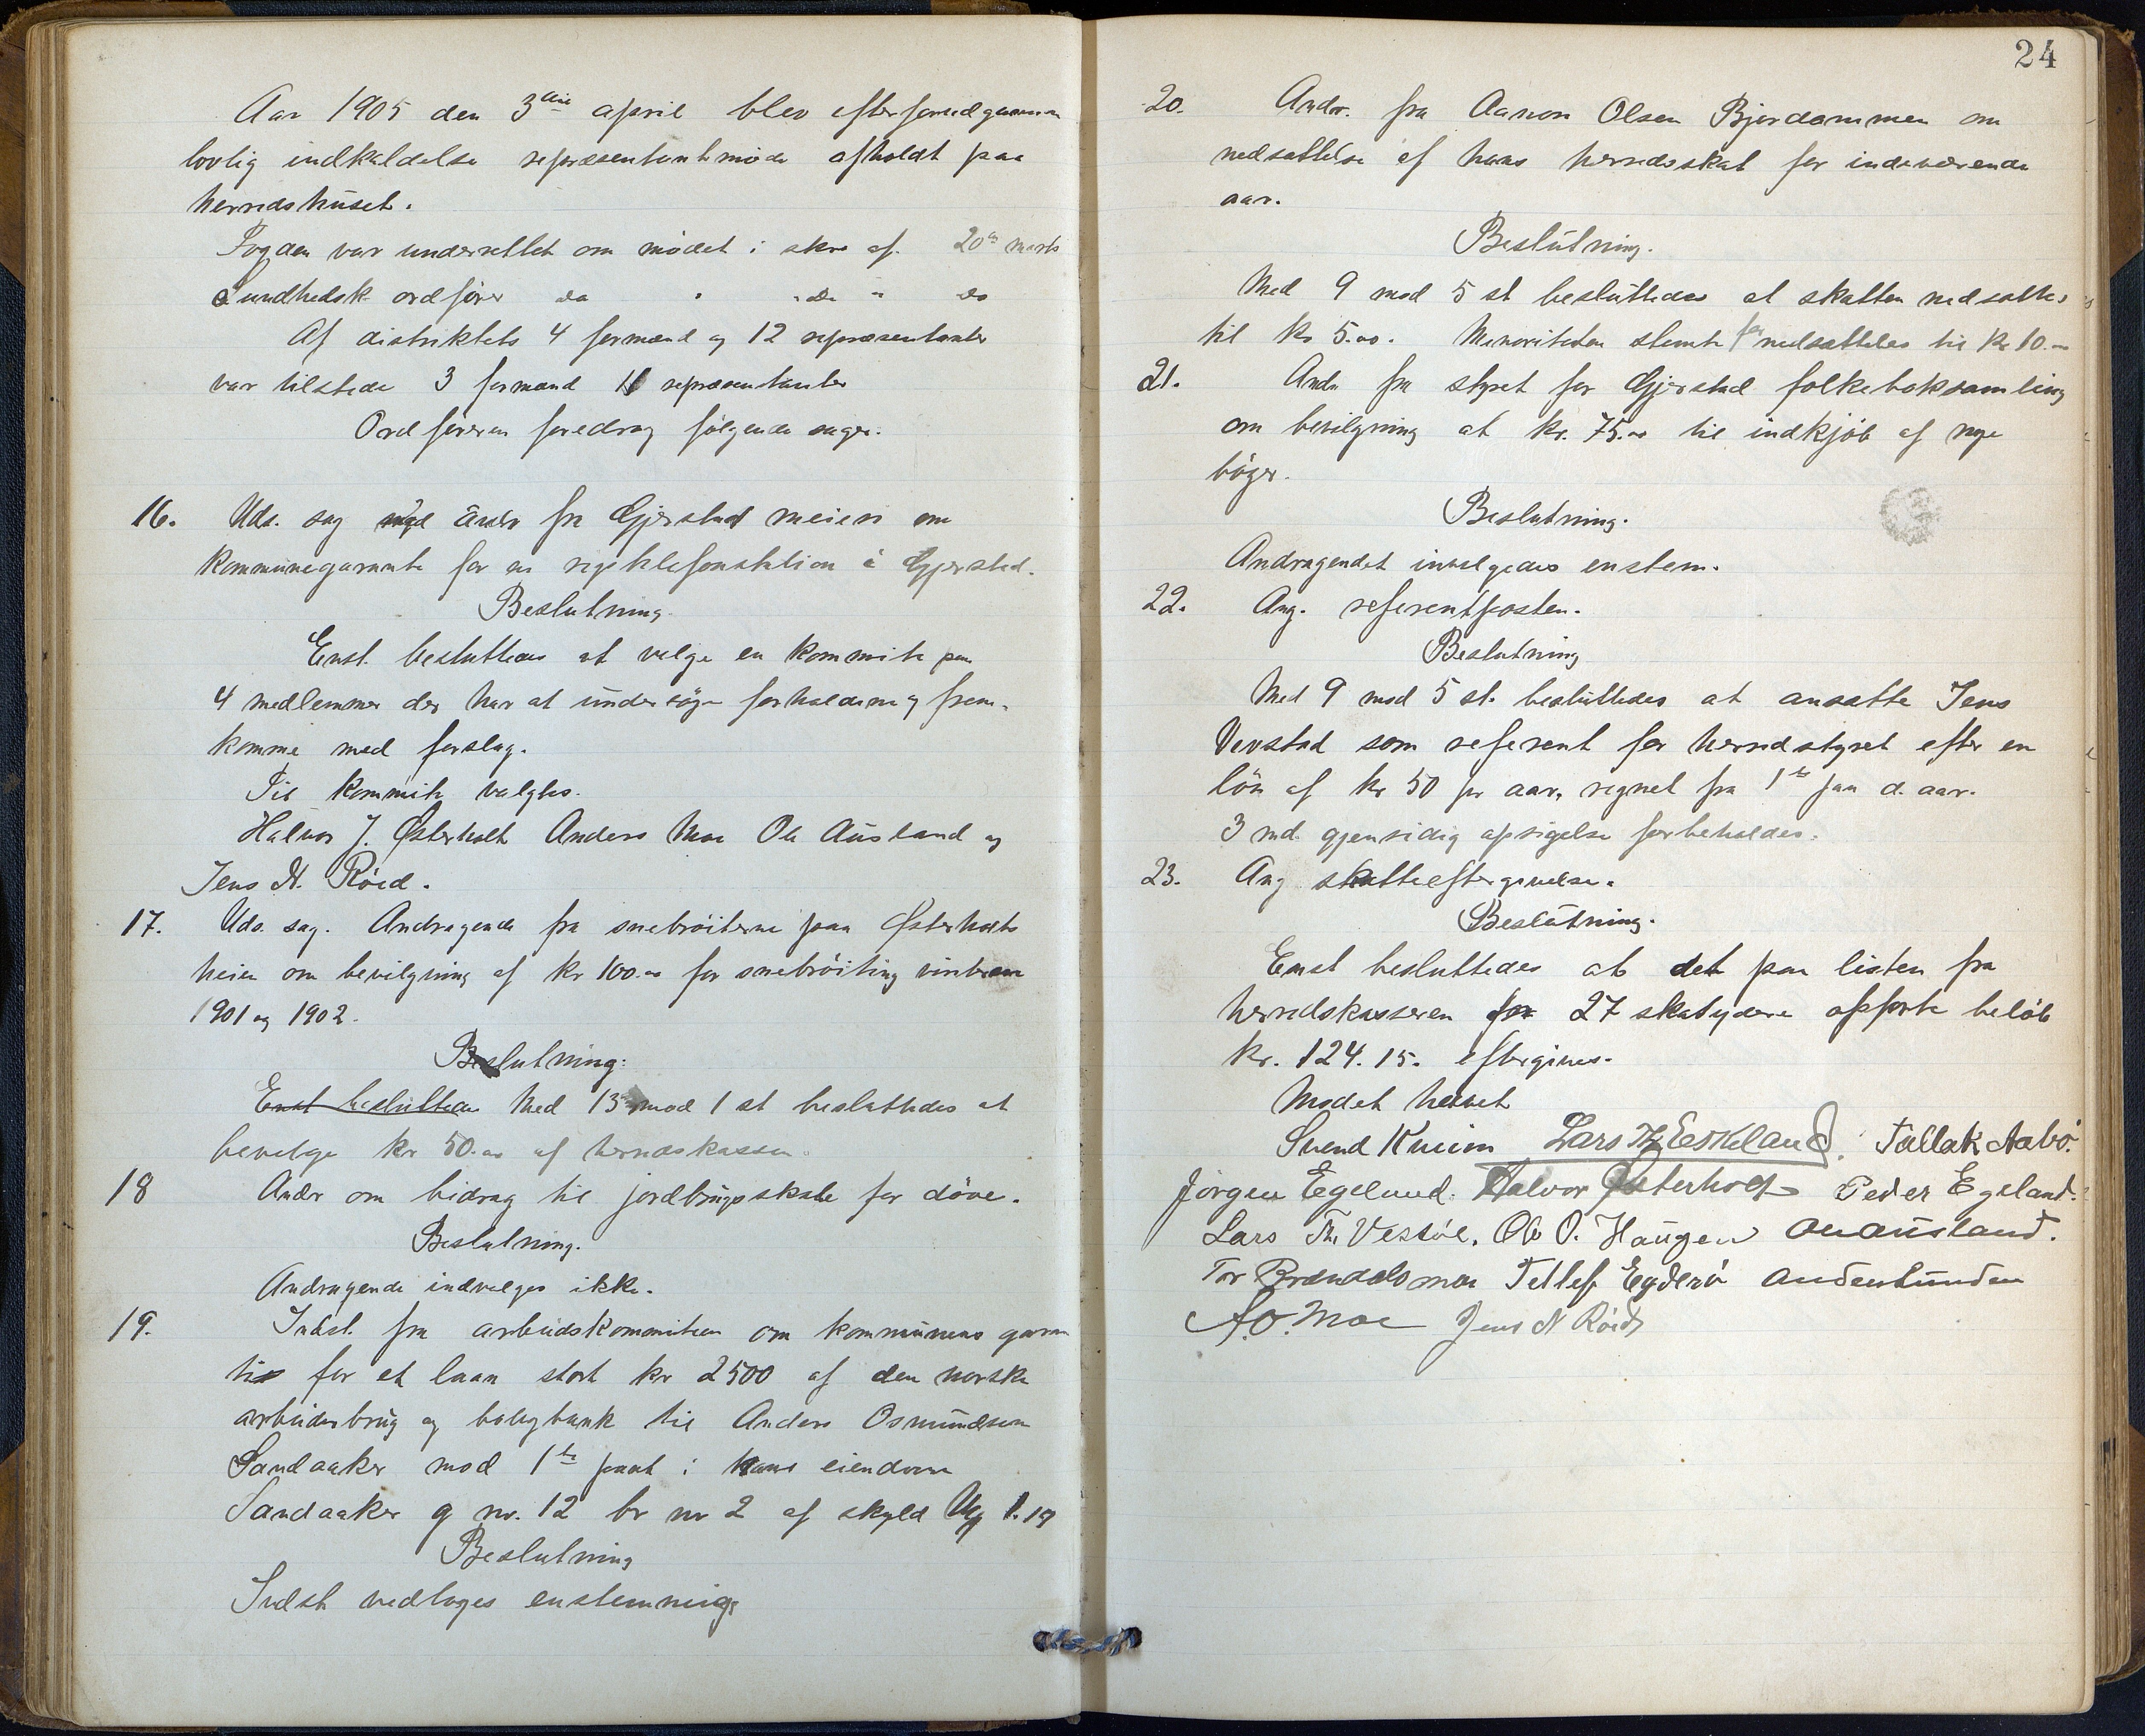 Aar 1905 den 3die april blev efter forudgaaende
lovlig indkaldelse repræsentantmöde afholdt paa
herredshuset.
Fogden var underrettet om mödet i skr. af 20de marts
Sundhedsk. ordförer do " " do " do
Af distriktets 4 formænd og 12 repræsentanter
var tilstede 3 formænd 11 repræsentanter
Ordföreren foredrog fölgende sager.
16. Uds. sag andr fra Gjerstad meieri om
kommunegarante for en rigstelefonstation i Gjerstad.
Beslutning
Enst. besluttedes at velge en kommite paa
4 medlemmer der har at undersöge forholdene og frem-
komme med forslag.
Til kommite valgtes.
Halvor J. Østerholt Anders Moe Ole Ausland og
Jens N. Röed.
17. Uds. sag. Andragende fra snebröiterne paa Østerholts
heien om bevilgning af kr 100.00 for snebröiting vinteren
1901 og 1902.
Beslutning:
Enst besluttedes Med 13 mod 1 st besluttedes at
bevilge kr 50.00 af herredskassen.
18 Andr om bidrag til jordbrugsskole for döve.
Beslutning.
Andragende indvilges ikke.
19. Indst. fra arbeidskommiteen om kommunens garan
tie for et laan stort kr 2500 af den norske
arbeiderbrug og boligbank til Anders Osmundsen
Sandaaker mod 1ste pant i hans eiendom
Sandaaker g nr. 12 br nr 2 af skyld 1.19
Beslutning
Indst vedtoges enstemmig
24
20. Andr. fra Aanon Olsen Bjordammen om
nedsættelse af hans herredsskat for indeværende
aar.
Beslutning.
Med 9 mod 5 st besluttedes at skatten nedsættes
til kr 5.00. Minoriteten stemte for nedsættelse til kr 10.00
21. Andr fra styret for Gjerstad folkeboksamling
om bevilgning at kr. 75.00 til indkjöb af nye
böger.
Beslutning.
Andragendet invilgedes enstem.
22. Ang. referentposten.
Beslutning
Med 9 mod 5 st. besluttedes at ansætte Jens
Vevstad som referent for herredstyret efter en
lön af kr 50 pr aar, regnet fra 1ste jan d. aar.
3 md. gjensidig opsigelse forbeholdes.
23. Ang skatteeftergivelse.
Beslutning.
Enst besluttedes at det paa listen fra
herredskasseren for 27 skatydere opförte belöb
kr. 124.15. eftergives.
Mödet hævet
Svend Kveim Lars Th Eskeland. Tallak Aabö.
Jörgen Egelund. Halvor Østerholt Peder Egeland.
Lars Th. Vestöl. Ole O. Haugen Ole Ausland.
Tor Brændalsmoe Tellef Egderö Anders Lunden
A. O. Moe Jens N Röed